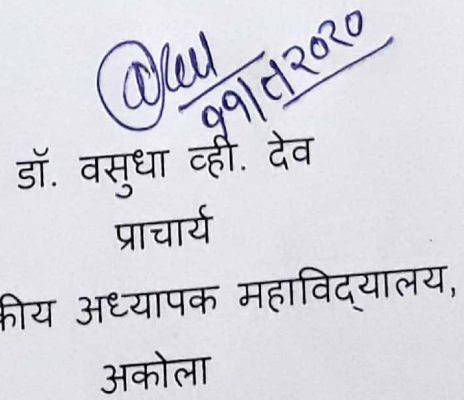 डॉ. वसुधा व्ही. देव
प्राचार्य
कीय अध्यापक महाविद्यालय,
अकोला